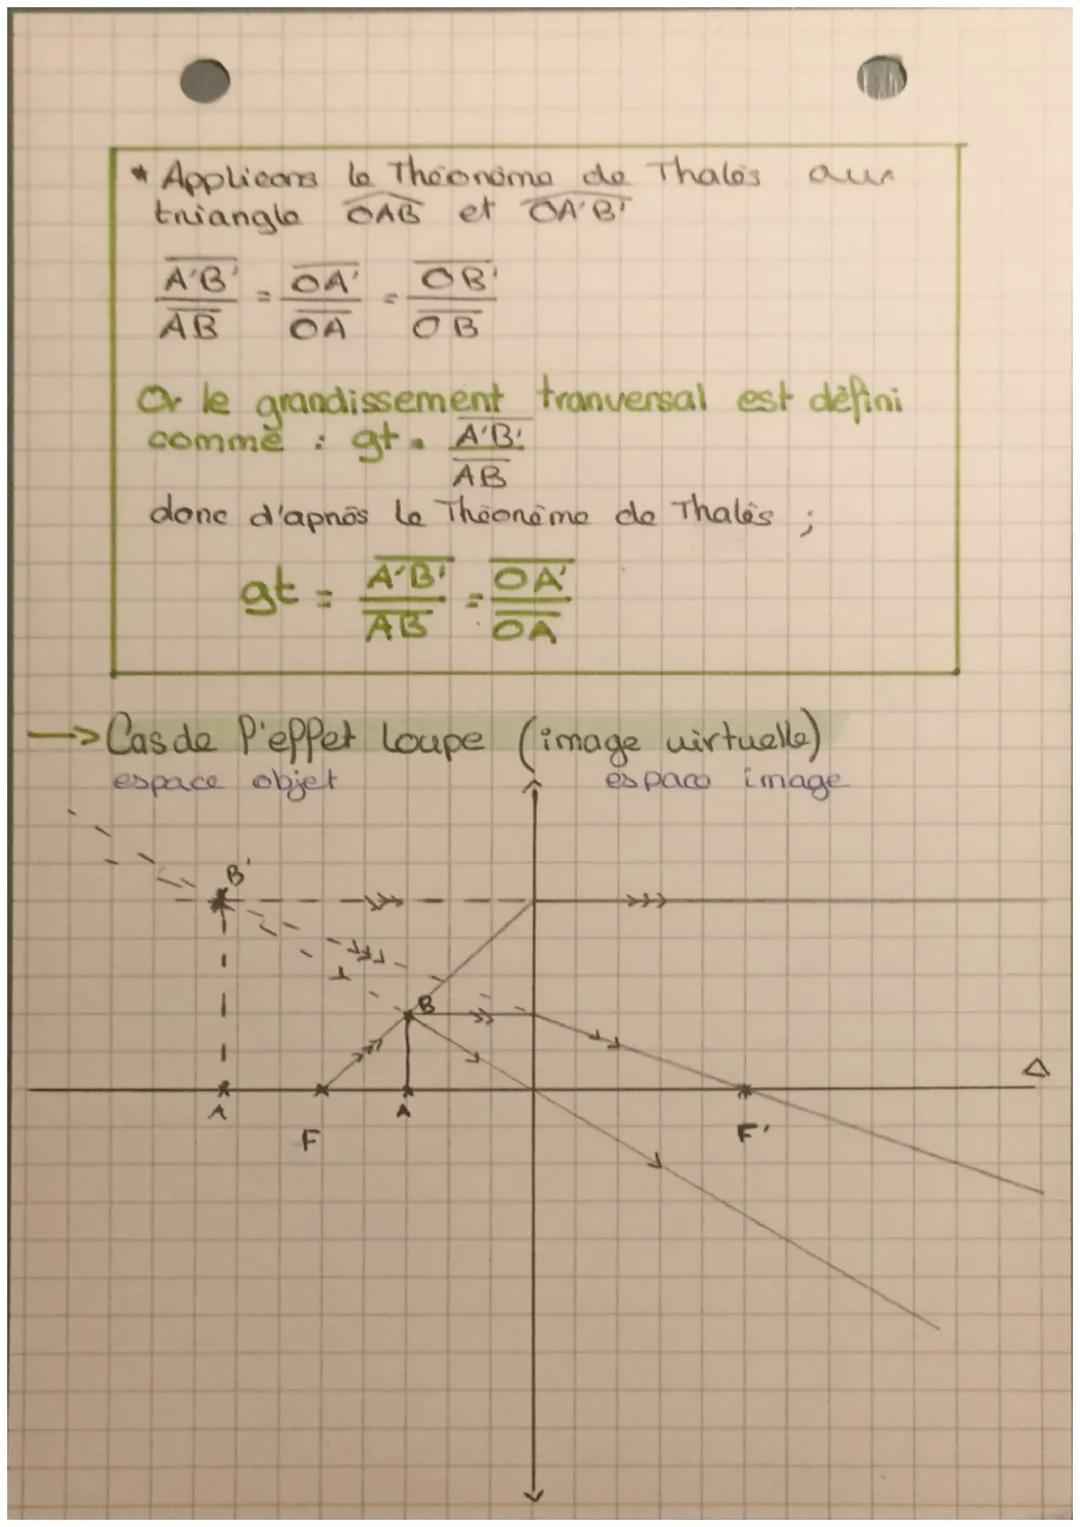 * Applicons le Théorème de Thalès aux
triangle OAB et OA'B'
A'B' = OA' = OB'
AB OA OB
Or le grandissement tranversal est défini
comme : gt = A'B'
AB
donc d'après le Théorème de Thalès ;
gt = A'B' = OA'
AB OA
→ Cas de l'effet loupe (image virtuelle)
espace objet espace image
B'
B
Δ
A A
F F'